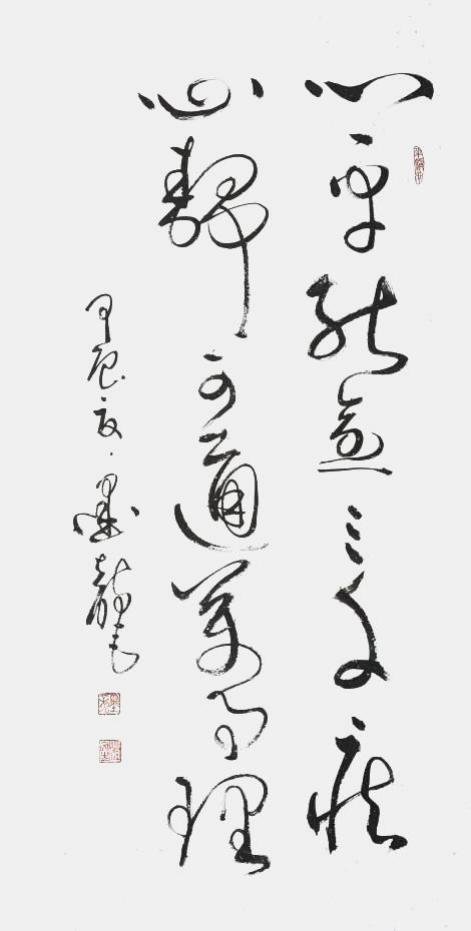 心平能愈三千疾
心靜可通萬事理
甲辰夏